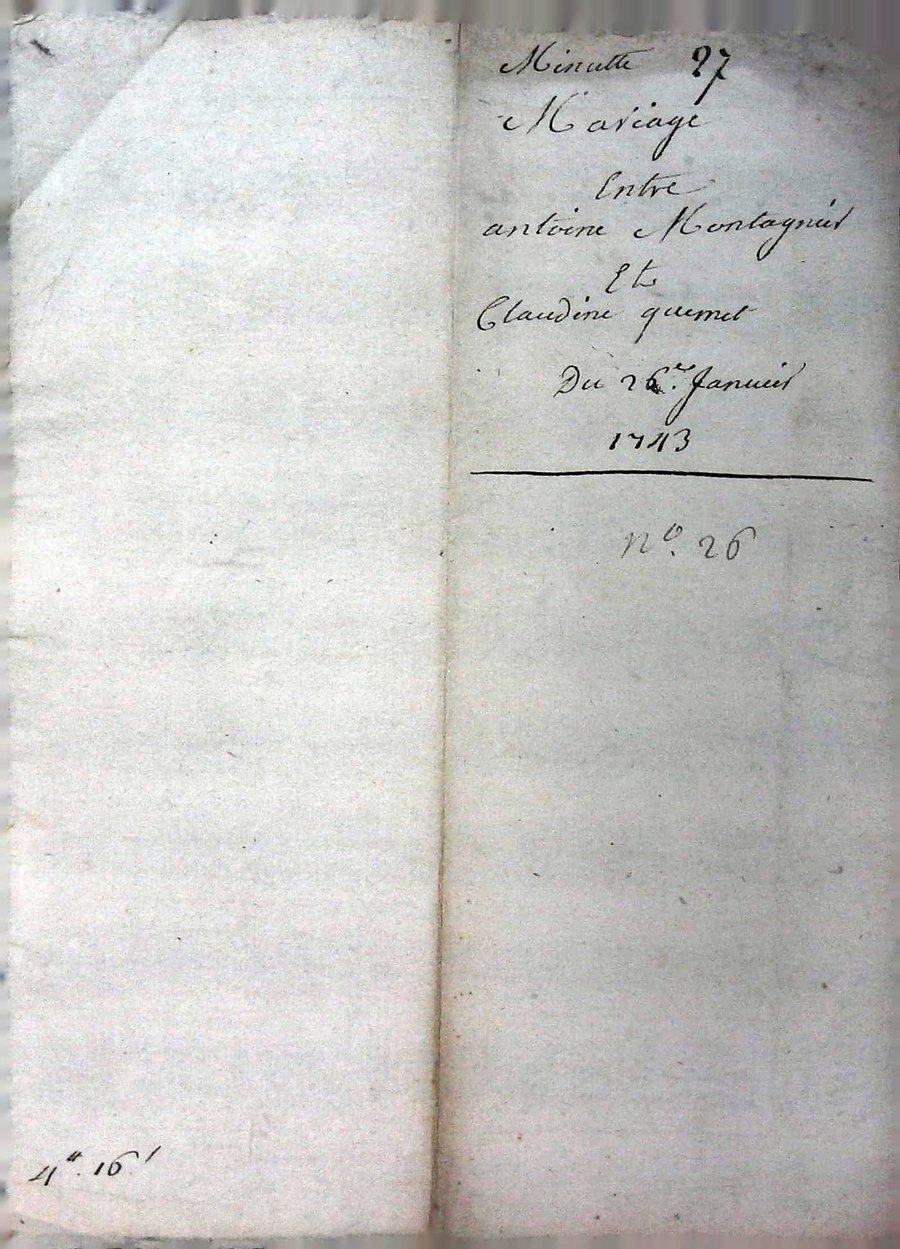 Minutte 27
Mariage
Entre
antoine Montagnier
Et
Claudine quemet
Du 26.e Janvier
1743
no. 26
4tt. 16s